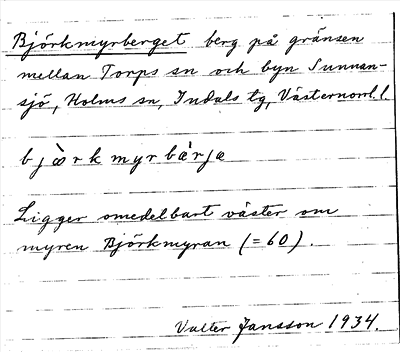 Björkmyrberget berg på gränsen
mellan Torps sn och byn Sunnan-
sjö, Holms sn, Indals tg, Västernorrl. l.
bjὼrkmyrbὰrja
Ligger omedelbart väster om
myren Björkmyran (=60).
Valter Jansson 1934.